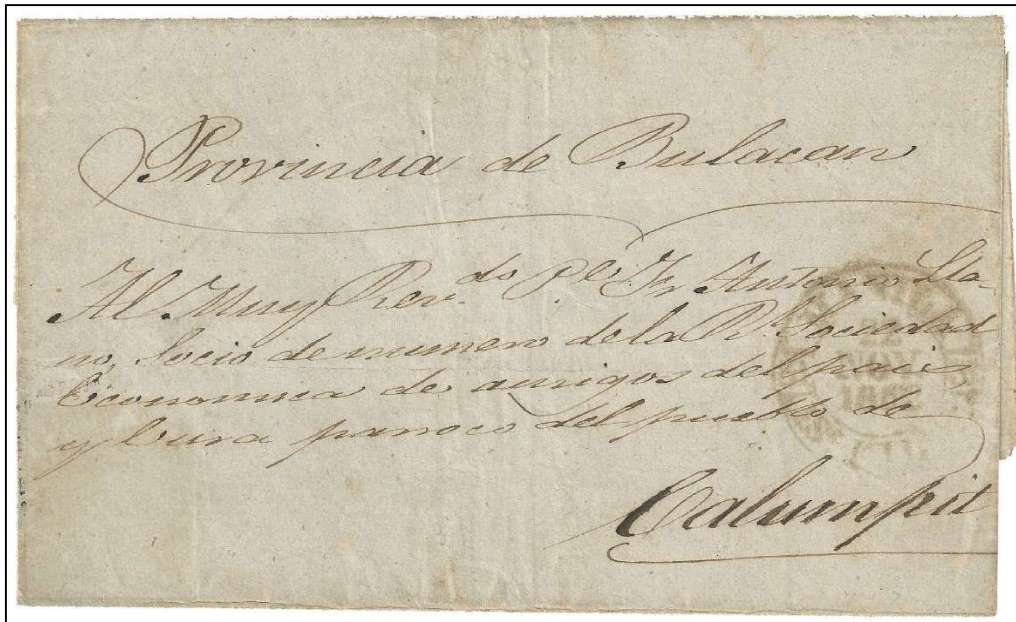 Provincia de Bulacan
Al Muy Rev.do P.e Fr Antonio Lla-
no, Socio de numero de la R.l Sociedad
Economica de amigos del pais,
y Cura parroco del pueblo de
Calumpit
NOV